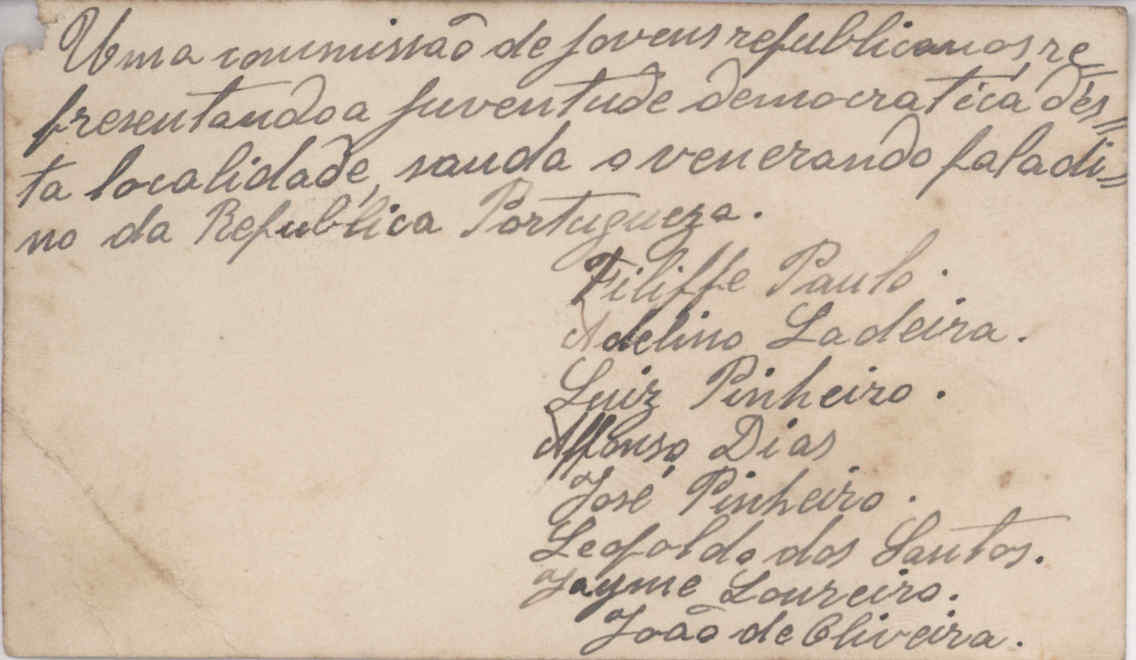 Uma commissão de jovens republicanos, re
presentando a juventude democratica des=
ta localidade, sauda o venerando paladi=
no da Republica Portugueza.
Filippe Paulo.
Adelino Ladeira.
Luiz Pinheiro.
Affonso Dias
José Pinheiro.
Leopoldo dos Santos.
Jayme Loureiro.
João de Oliveira.